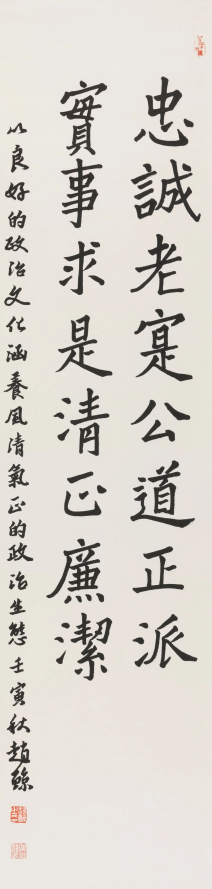 忠誠老寔公道正派
實事求是清正廉潔
以良好的政治文化涵養風清氣正的政治生態壬寅秋趙鯨